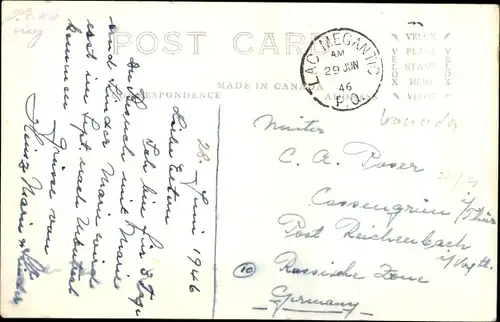 POST CARD
MADE IN CANADA
CORRESPONDENCE ADDRESS
LAC MEGANTIC
AM
29 JUN
46
P.Q.
VELOX
PLACE
STAMP
HERE
VELOX
Kanada
28. Juni 1946
Liebe Eltern
Ich bin für 3 Tage
zu Besuch mit Marie
und Kinder. Marie wird
erst im Sept. nach
kommen
Grüsse von
Marie & Kinder
Mister
C. A. Poser
Cossengrün i/Thür
Post Reichenbach
i/Vogtl.
Russische Zone
Germany
10